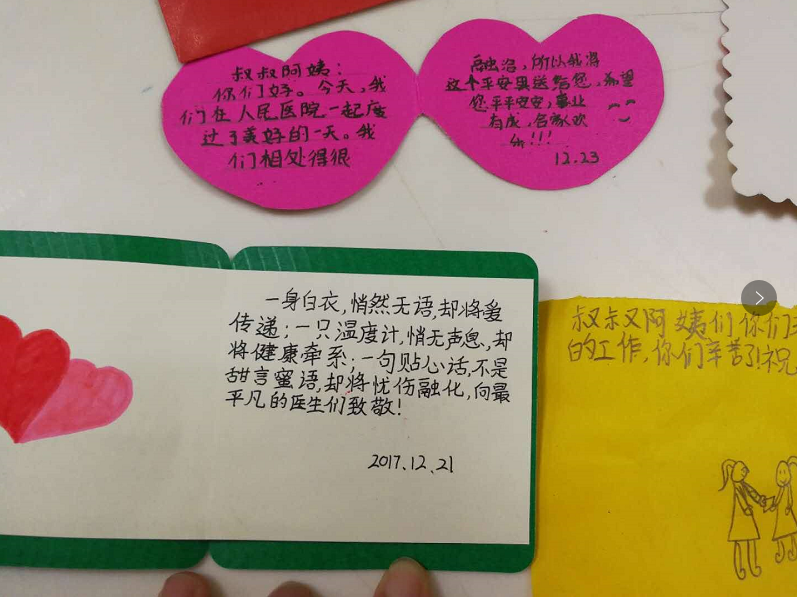 叔叔阿姨：
你们好。今天，我
们在人民医院一起度
过了美好的一天。我
们相处得很
融洽，所以我将
这个平安果送给您，希望
您平平安安，事业
有成，合家欢
乐!!!
12.23
一身白衣，悄然无语，却将爱
传递；一只温度计，悄无声息，却
将健康牵系；一句贴心话，不是
甜言蜜语，却将忧伤融化，向最
平凡的医生们致敬！
2017.12.21
叔叔又阿姨们你们
的工作，你们辛苦了！祝